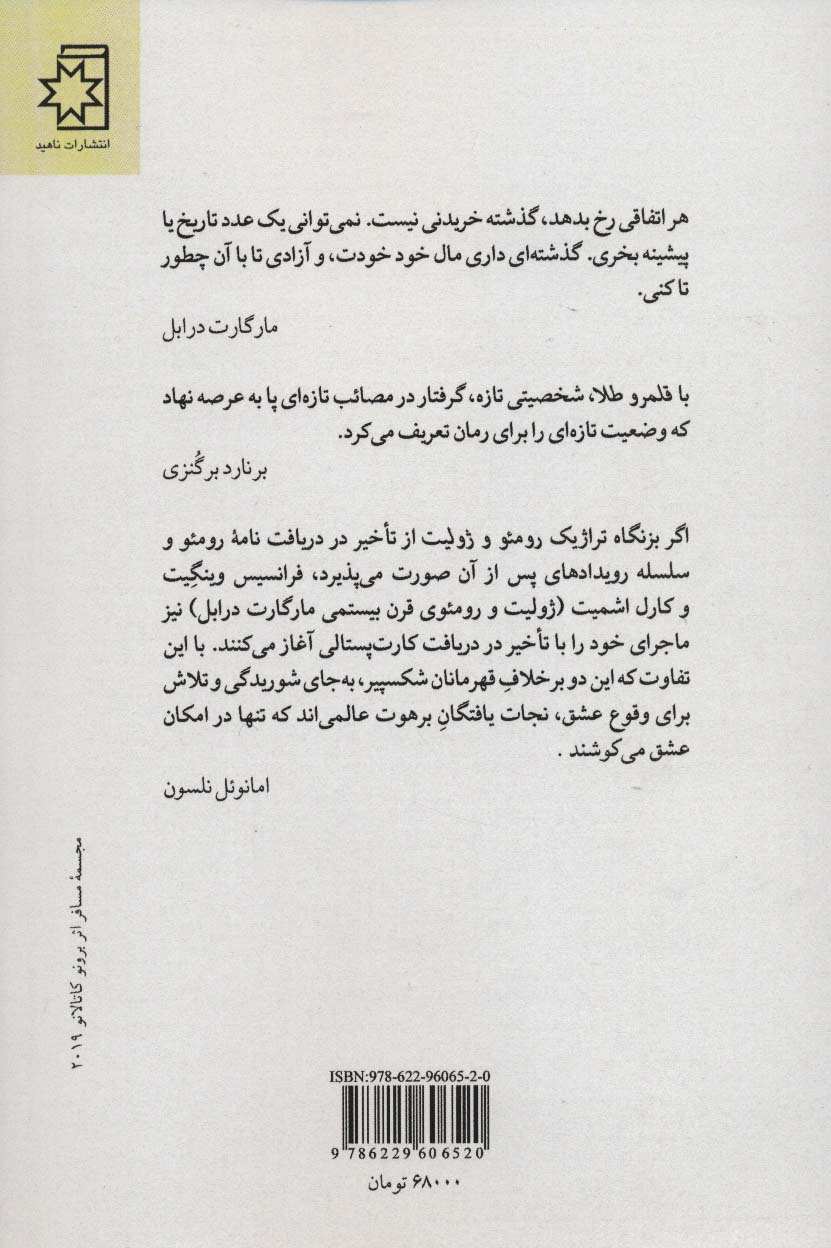 انتشارات ناهید
هر اتفاقی رخ بدهد، گذشته خریدنی نیست. نمی‌توانی یک عدد تاریخ یا
پیشینه بخری. گذشته‌ای داری مال خود خودت، و آزادی تا با آن چطور
تا کنی.
مارگارت درابل
با قلمرو طلا، شخصیتی تازه، گرفتار در مصائب تازه‌ای پا به عرصه نهاد
که وضعیت تازه‌ای را برای رمان تعریف می‌کرد.
برنارد برگُنزی
اگر بزنگاه تراژیک رومئو و ژولیت از تأخیر در دریافت نامهٔ رومئو و
سلسله رویدادهای پس از آن صورت می‌پذیرد، فرانسیس وینگِیت
و کارل اشمیت (ژولیت و رومئوی قرن بیستمی مارگارت درابل) نیز
ماجرای خود را با تأخیر در دریافت کارت‌پستالی آغاز می‌کنند. با این
تفاوت که این دو برخلافِ قهرمانان شکسپیر، به‌جای شوریدگی و تلاش
برای وقوع عشق، نجات یافتگانِ برهوت عالمی‌اند که تنها در امکان
عشق می‌کوشند .
امانوئل نلسون
مجسمهٔ مسافر اثر برونو کاتالانو ۲۰۱۹
ISBN:978-622-96065-2-0
9 786229 606520
۶۸۰۰۰ تومان